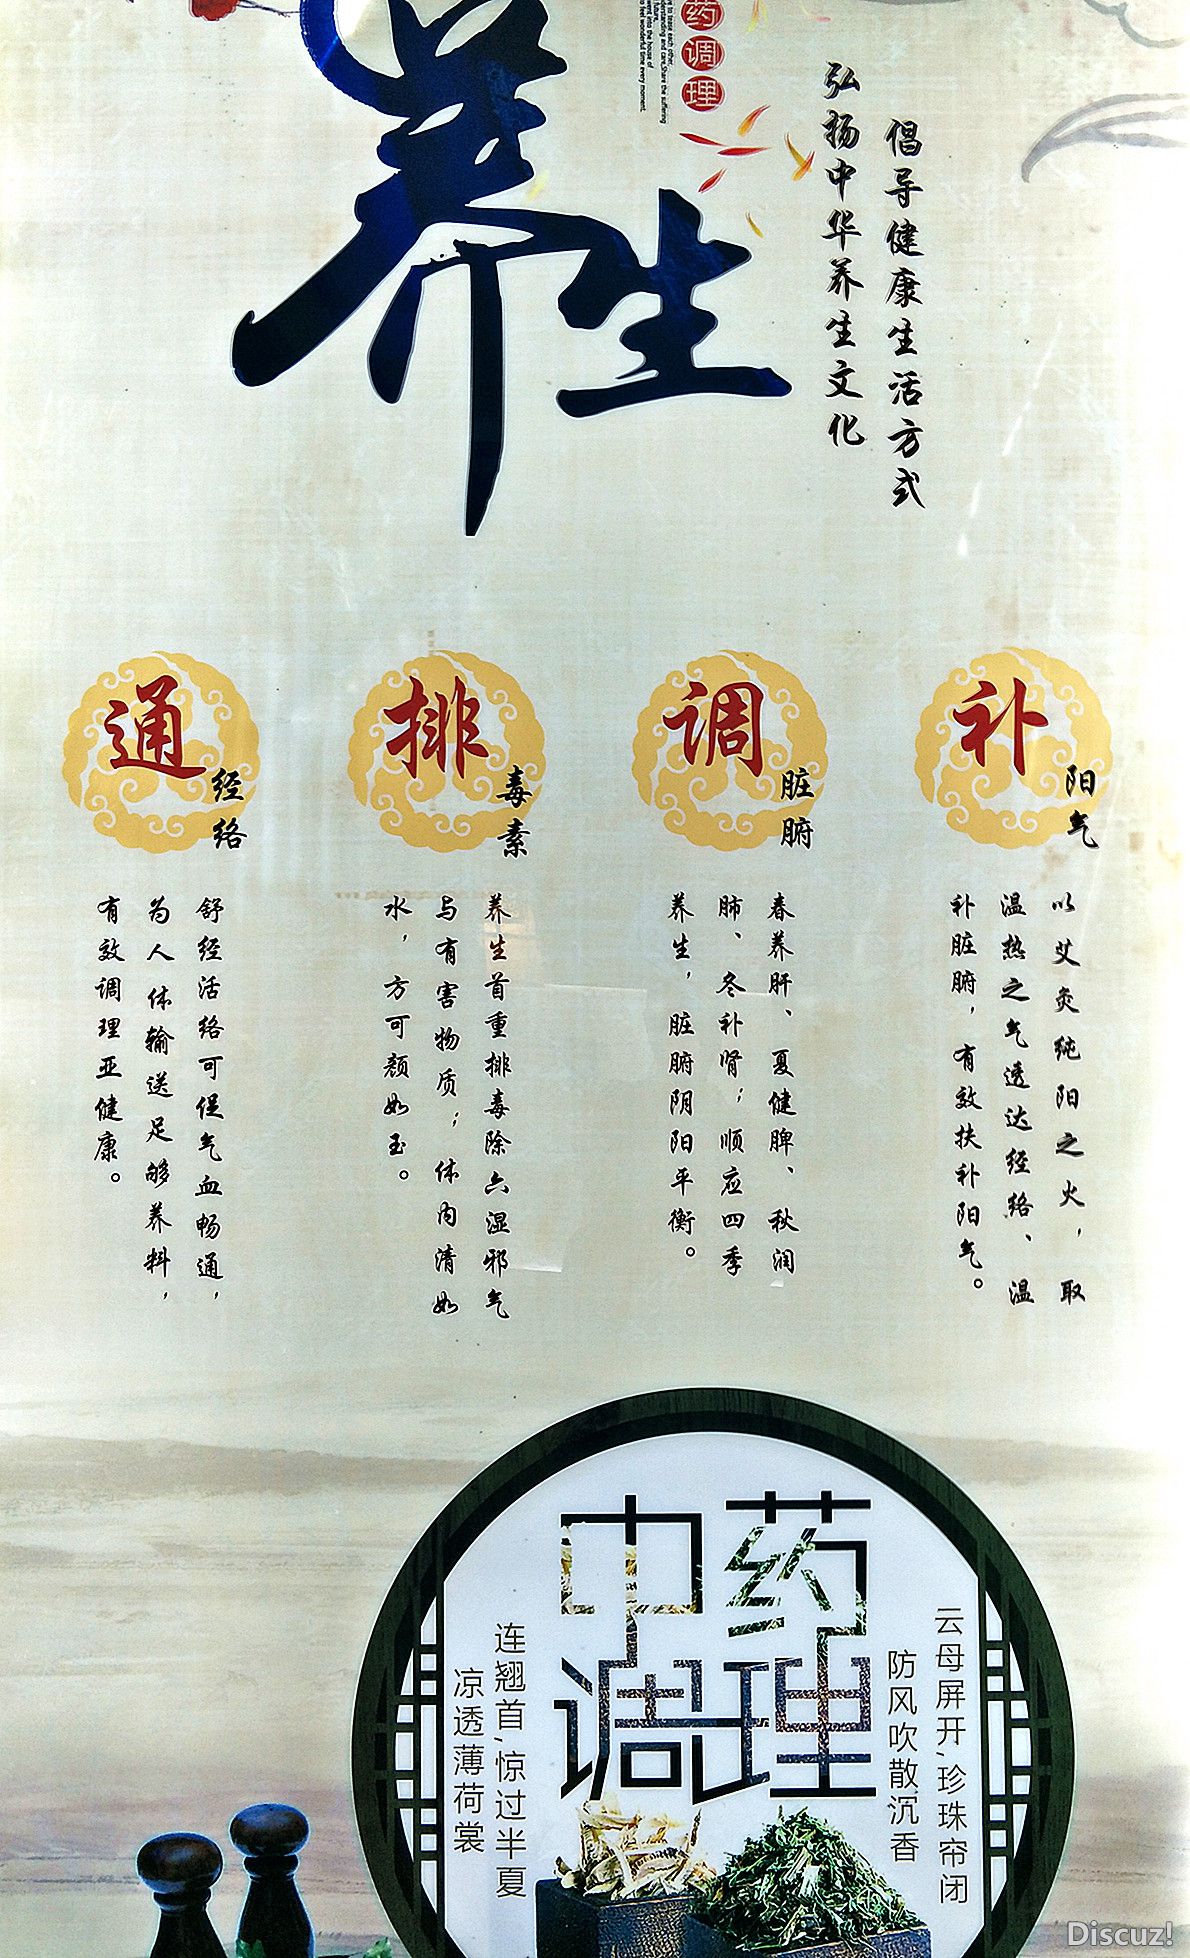 养生
药调理
e to tease each other,
derstanding and care,Share the suffering
future,
ment, into the house of
feel wonderful time every moment.
弘扬中华养生文化
倡导健康生活方式
通经络
舒经活络可促气血畅通，
为人体输送足够养料，
有效调理亚健康。
排毒素
养生首重排毒除六湿邪气
与有害物质；体内清如
水，方可颜如玉。
调脏腑
春养肝、夏健脾、秋润
肺、冬补肾；顺应四季
养生，脏腑阴阳平衡。
补阳气
以艾灸纯阳之火，取
温热之气透达经络、温
补脏腑，有效扶补阳气。
中药
调理
云母屏开,珍珠帘闭
防风吹散沉香
连翘首,惊过半夏
凉透薄荷裳
Discuz!